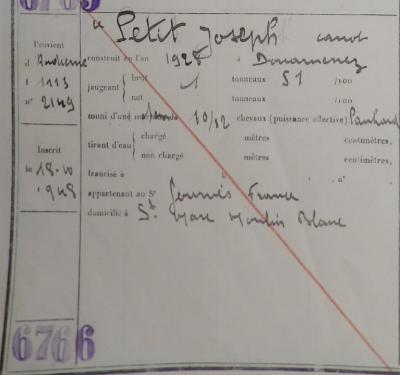 Le Petit Joseph canot
Provient
construit en l'an 1928 à Douarnenez
d'Audierne
f° 1113
n° 2149
jaugeant brut 1 tonneaux 51 /100
net tonneaux /100
muni d'une 10/12 chevaux (puissance effective) Panhard
tirant d'eau chargé mètres centimètres.
non chargé mètres centimètres.
Inscrit
le 18.10
1948
francisé à n°
appartenant au Sr France
domicilié à St Marc Moulin Blanc
6766